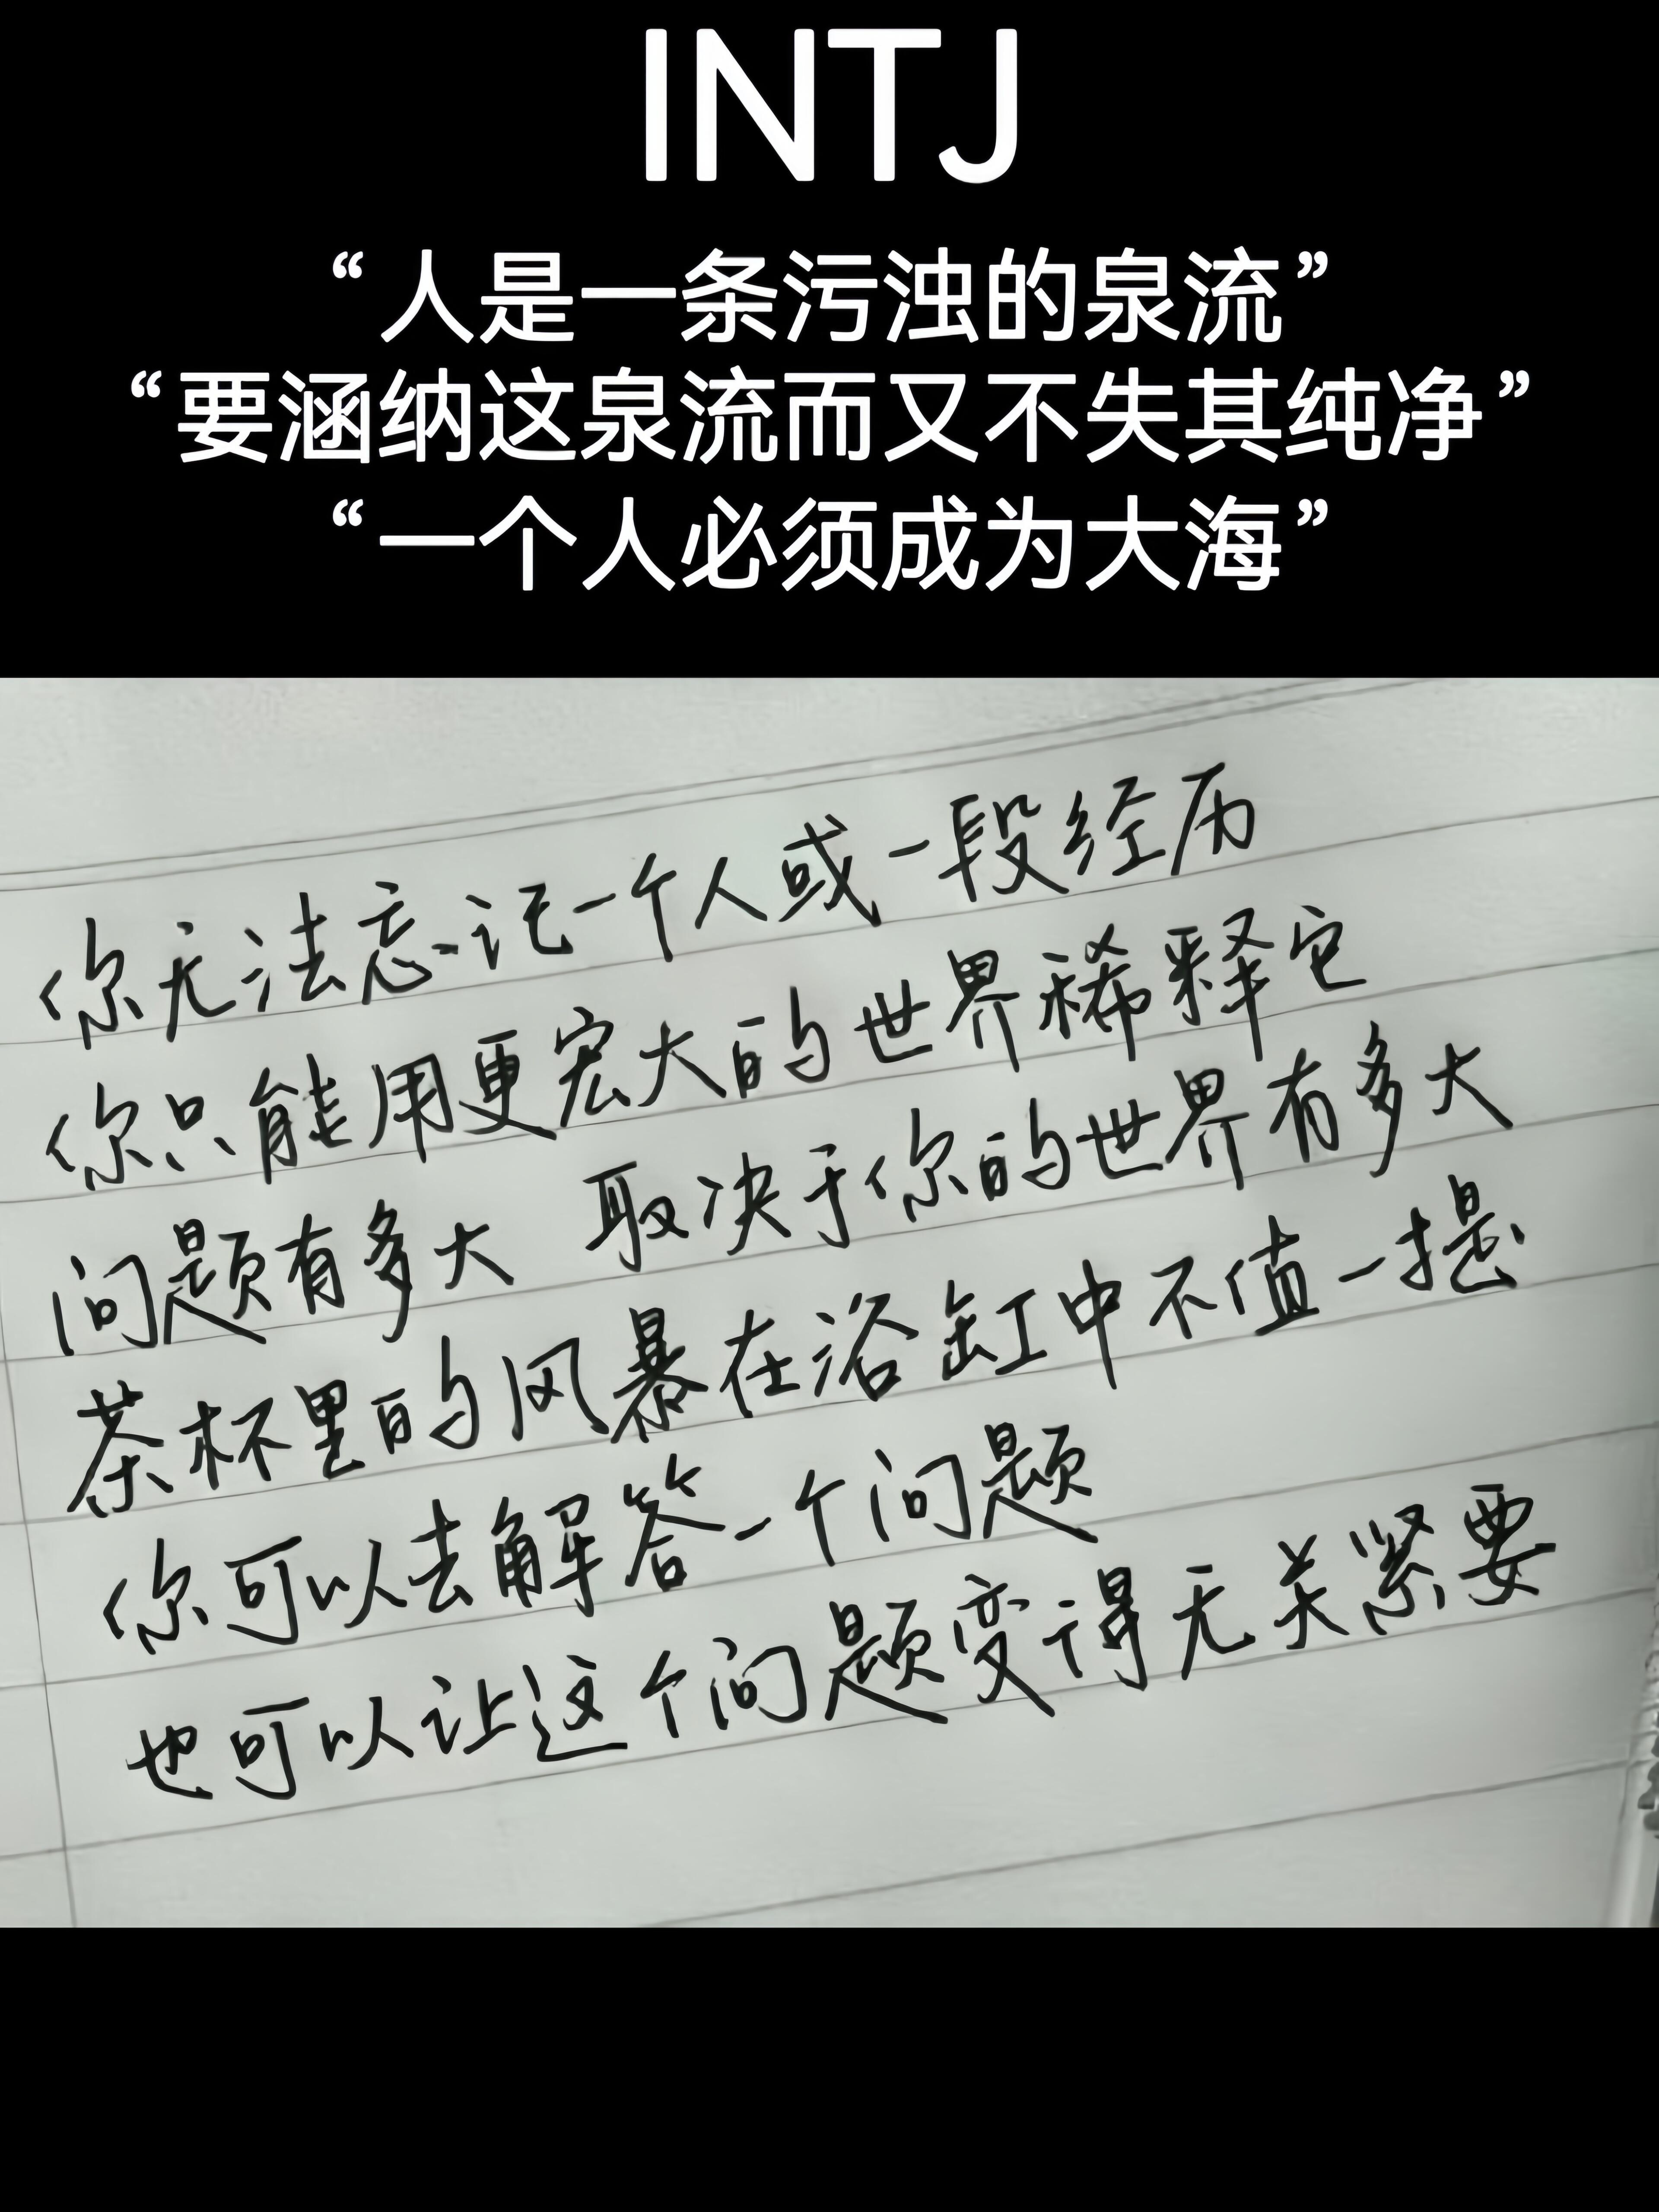 INTJ
“人是一条污浊的泉流”
“要涵纳这泉流而又不失其纯净”
“一个人必须成为大海”
你无法忘记一个人或一段经历
你只能用更宏大的世界稀释它
问题有多大 取决于你的世界有多大
茶杯里的风暴在浴缸中不值一提
你可以去解答一个问题
也可以让这个问题变得无关紧要